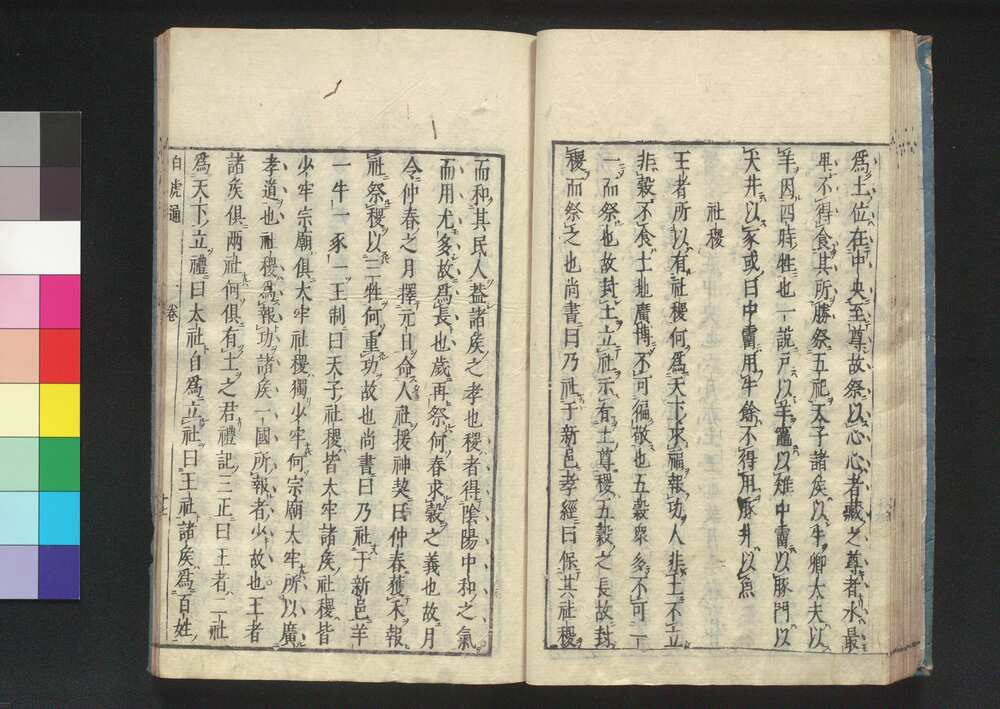 爲土位在中央至尊故祭以心心者藏之尊者水最
卑不得食其所勝祭五祀天子諸矦以牛卿大夫以
羊因四時牲也一說戸以羊竈以雉中霤以豚門以
犬井以豕或曰中霤用牛餘不得用豚井以魚
社稷
王者所以有社稷何爲天下求福報功人非土不立
非穀不食土地廣博不可徧敬也五穀衆多不可一
一而祭也故封土立社示有土尊稷五穀之長故封
稷而祭之也尚書曰乃社于新邑孝經曰保其社稷
而和其民人蓋諸矦之孝也稷者得陰陽中和之氣
而用尤多故爲長也歲再祭何春求穀之義也故月
令仲春之月擇元日命人社援神契曰仲春獲禾報
社祭稷以三牲何重功故也尚書曰乃社于新邑羊
一牛一豕一王制曰天子社稷皆太牢諸矦社稷皆
少牢宗廟俱太牢社稷獨少牢何宗廟太牢所以廣
孝道也社稷爲報功諸矦一國所報者少故也王者
諸矦俱兩社何俱有土之君禮記三正曰王者二社
爲天下立禮曰太社自爲立社曰王社諸矦爲百姓
白虎通 卷